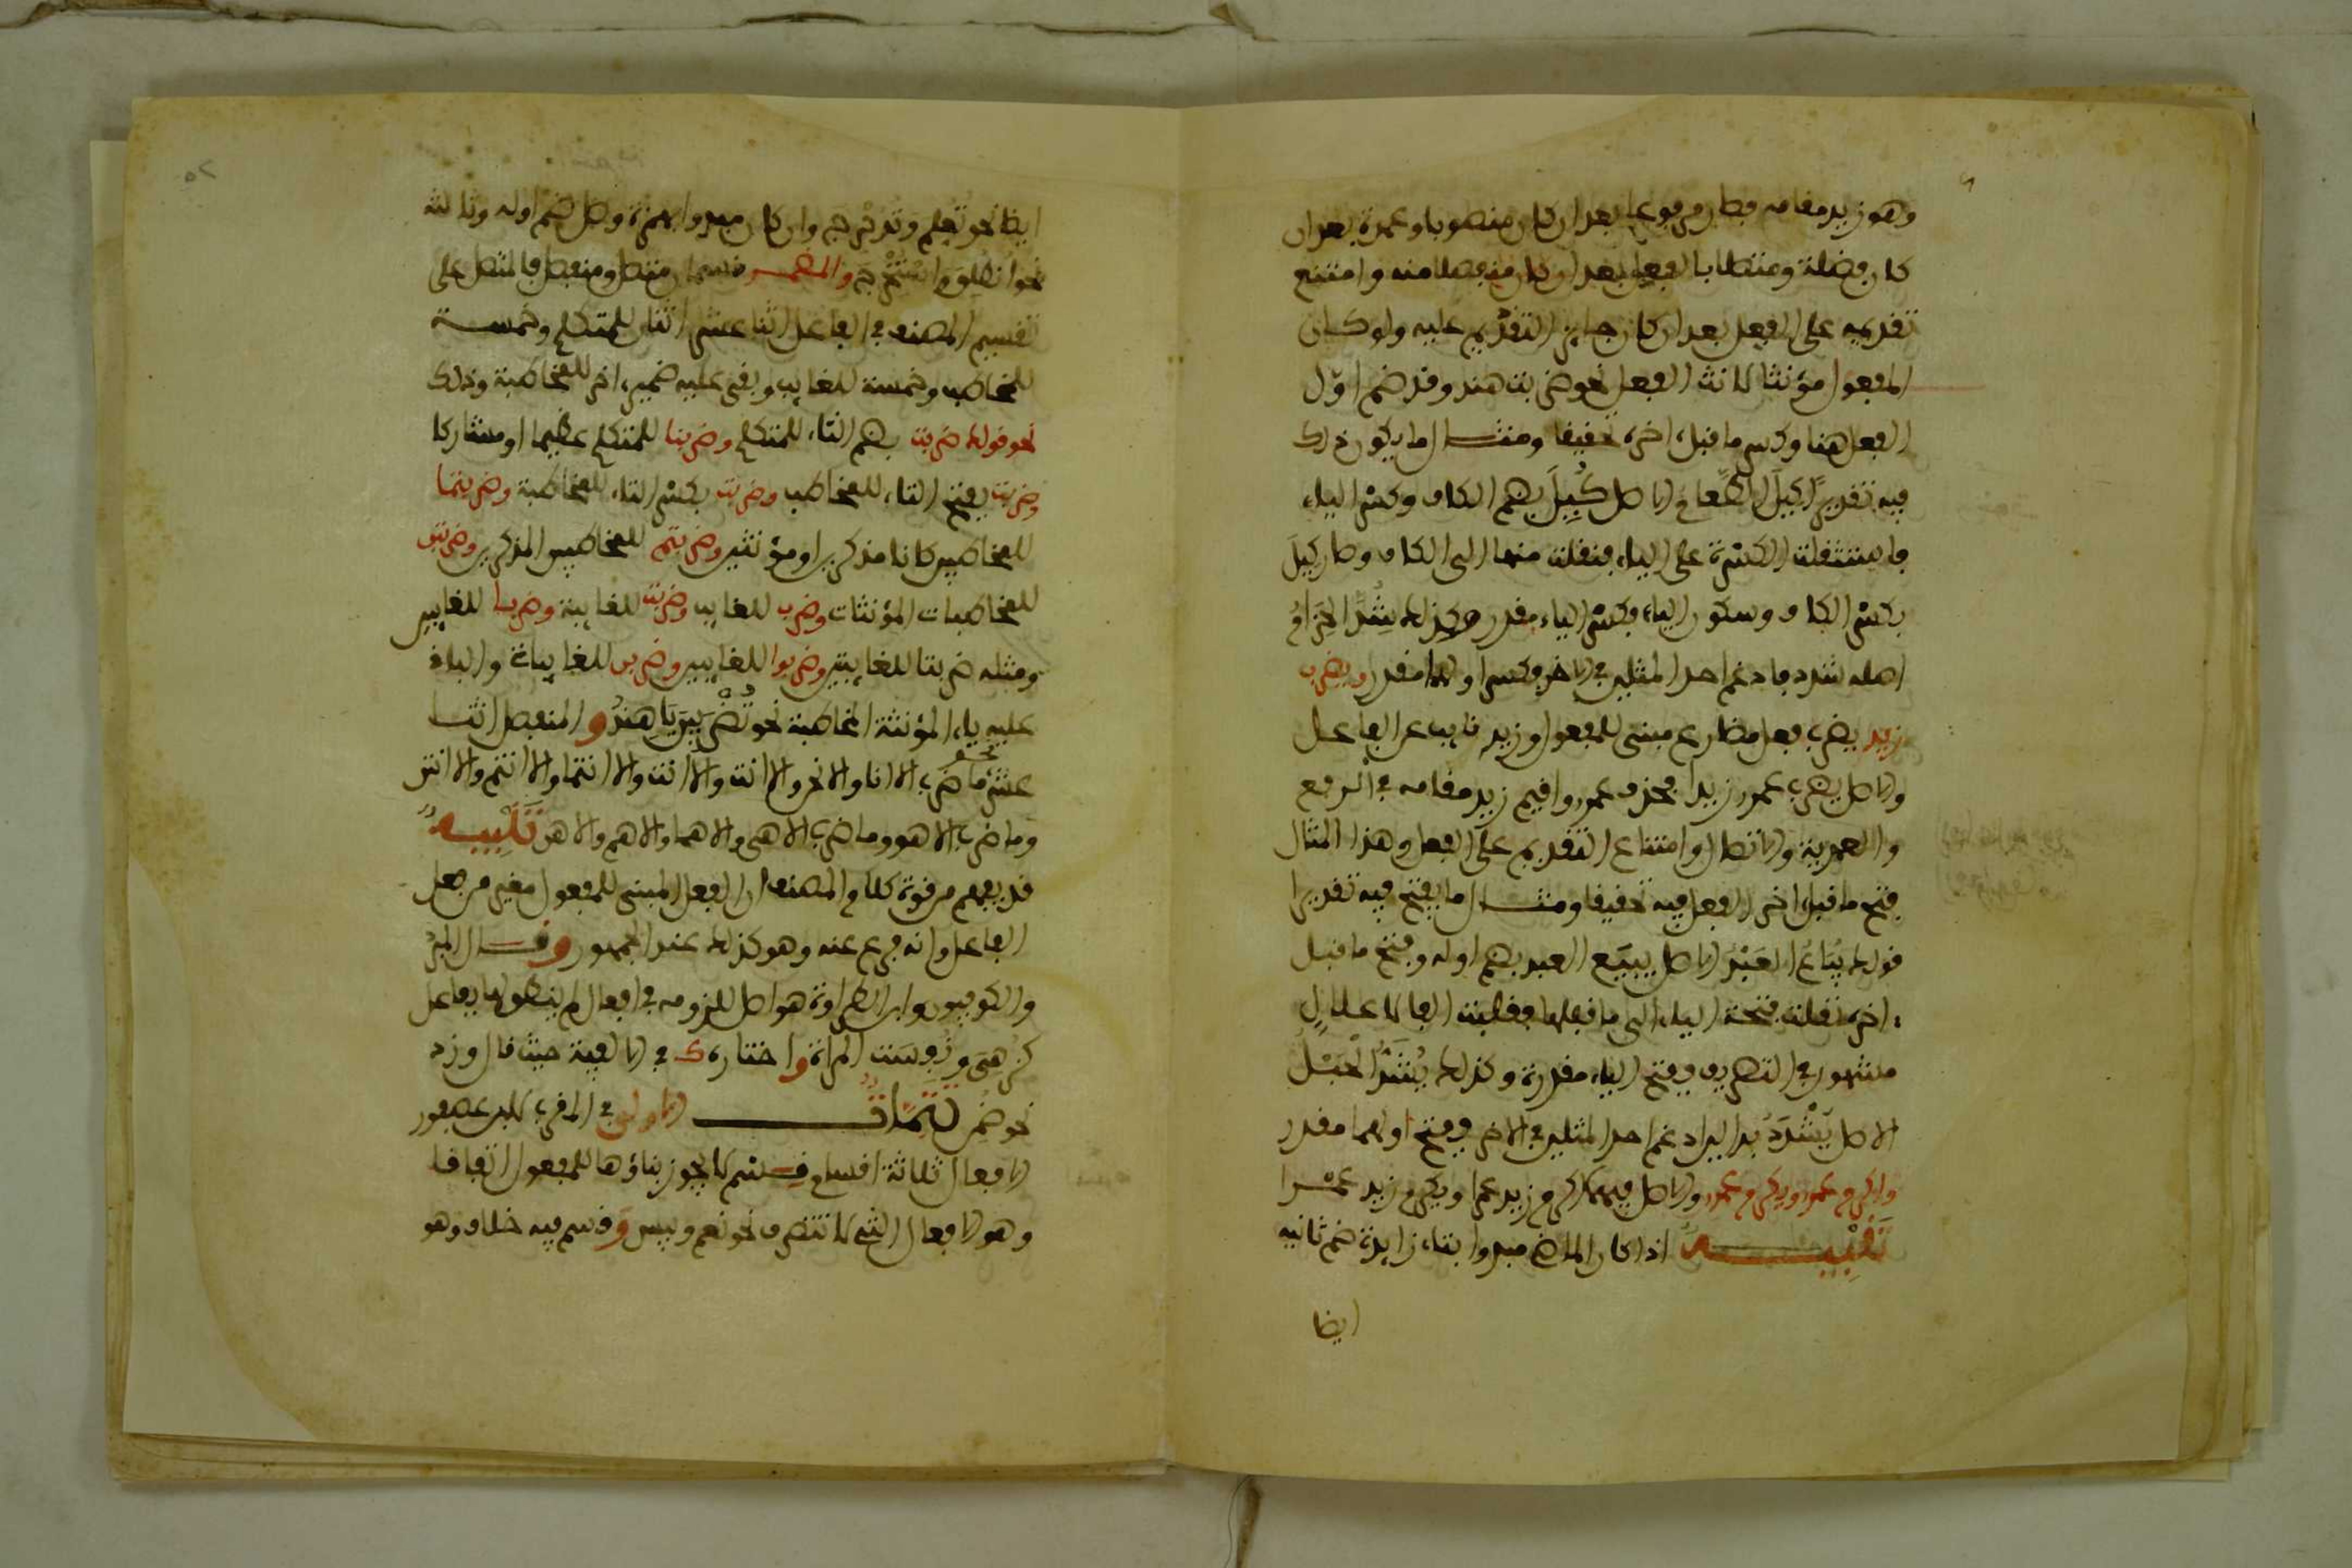 وهو زيد مقامه فصار مرفوعا بعد ان كان منصوبا وعمدة بعد ان
كان فضلة ومتصلا بالفعل بعد ان كان منفصلا منه وامتنع
تقديمه على الفعل بعد ان كان جايز التقديم عليه ولو كان
المفعول مؤنثا لانث الفعل نحو ضربت هند وقد ضم اوّل
الفعل هنا وكسر ما قبل اخره تحقيقا ومثال ما يكون ذلك
فيه تقديرًا كِيلَ الطَّعامُ الاصل كُيِلَ بضم الكاف وكسر الياء
فاستثقلت الكسرة على الياء فنقلت منها الى الكاف وصار كِيلَ
بكسر الكاف وسكون الياء فكسر الياء مقدر وكذلك شُدَّ الحِزَامُ
اصله شدد فادغم احد المثلين في الاخر فكسر اولهما مقدر ويضرب
زيد يضرب فعل مضارع مبنى للمفعول وزيد نايب عن الفاعل
والاصل يضرب عمرو زيدا فحذف عمرو واقيم زيد مقامه في الرفع
والعمدية والاتصال وامتناع التقديم على الفعل وهذا المثال
فتح ما قبل اخر الفعل فيه تحقيقا ومثال ما يفتح فيه تقديرا
قولك يُبَاعُ العَبْدُ الاصل يبيَع العبد بضم اوله وفتح ما قبل
اخره نقلت فتحة الياء الى ما قبلها فقلبت الفا لاعلالٍ
مشهور في التصريف وفتح الياء مقدرة وكذلك يُشَدُّ الْحَبْلُ
الاصل يُشْدَدُ بدالين ادغم احد المثلين في الاخر وفتح اولهما مقدر
واكرم عمرو ويكرم عمرو والاصل فيهما اكرم زيد عمرا ويكرم زيد عمْرا
تَنْبِيه اذا كان الماضي مبدوا بتاء زايدة ضم ثانيه
ايضا
٥٢
ايضا نحو تُعُلِم وتُدُحْرِجَ وان كان مبدوا بهمزة وصل ضم اوله وثالثه
نحو انطُلِق واسْتُخْرِجَ والمضمر قسمان متصل ومنفصل فالمتصل على
تقسيم المصنف في الفاعل اثنا عشر اثنان للمتكلم وخمسة
للمخاطب وخمسة للغايب وبقي عليه ضمير اخر للمخاطبة وذلك
نحو قولك ضربت بضم التاء للمتكلم وضربنا للمتكلم عظيما او مشاركا
وضربت بفتح التاء للمخاطب وضربت بكسر التاء للمخاطبة وضربتما
للمخاطبين كانا مذكرين او مؤنثين وضربتم للمخاطبين المذكرين وضربتن
للمخاطبات المؤنثات وضرب للغايب وضربت للغايبة وضربا للغايبين
ومثله ضربتا للغايبتين وضربوا للغايبين وضربن للغايبات والباقي
عليه ياء المؤنثة المخاطبة نحو تُضْرَبِينَ يَا هِنْدُ والمنفصل اثنا
عشر نحو ما ضرب الا انا والا نحن والا انت والا انت والا انتما والا انتم والا انتن
وما ضرب الا هو وما ضرب الا هي والا هما والا هم والا هن تَنْبِيه
قد يفهم من قوة كلام المصنف ان الفعل المبنى للمفعول مغير من فعل
الفاعل وانه فرع عنه وهو كذلك عند الجمهور وقال المبرد
والكوفيون وابن الطراوة هو اصل للزومه في افعال لم ينطق لها بفاعل
كزُهِيَ ونُفِسَت المراة واختاره ك في الالفية حيث قال وزد
نحو ضُمِن تَتِمَّاتٌ الاولى في المقرب لابن عصفور
الافعال ثلاثة اقسام قسْم لا يجوز بناؤها للمفعول اتفاقا
وهو الافعال التي لا تتصرف نحو نعم وبيس وقسم فيه خلاف وهو